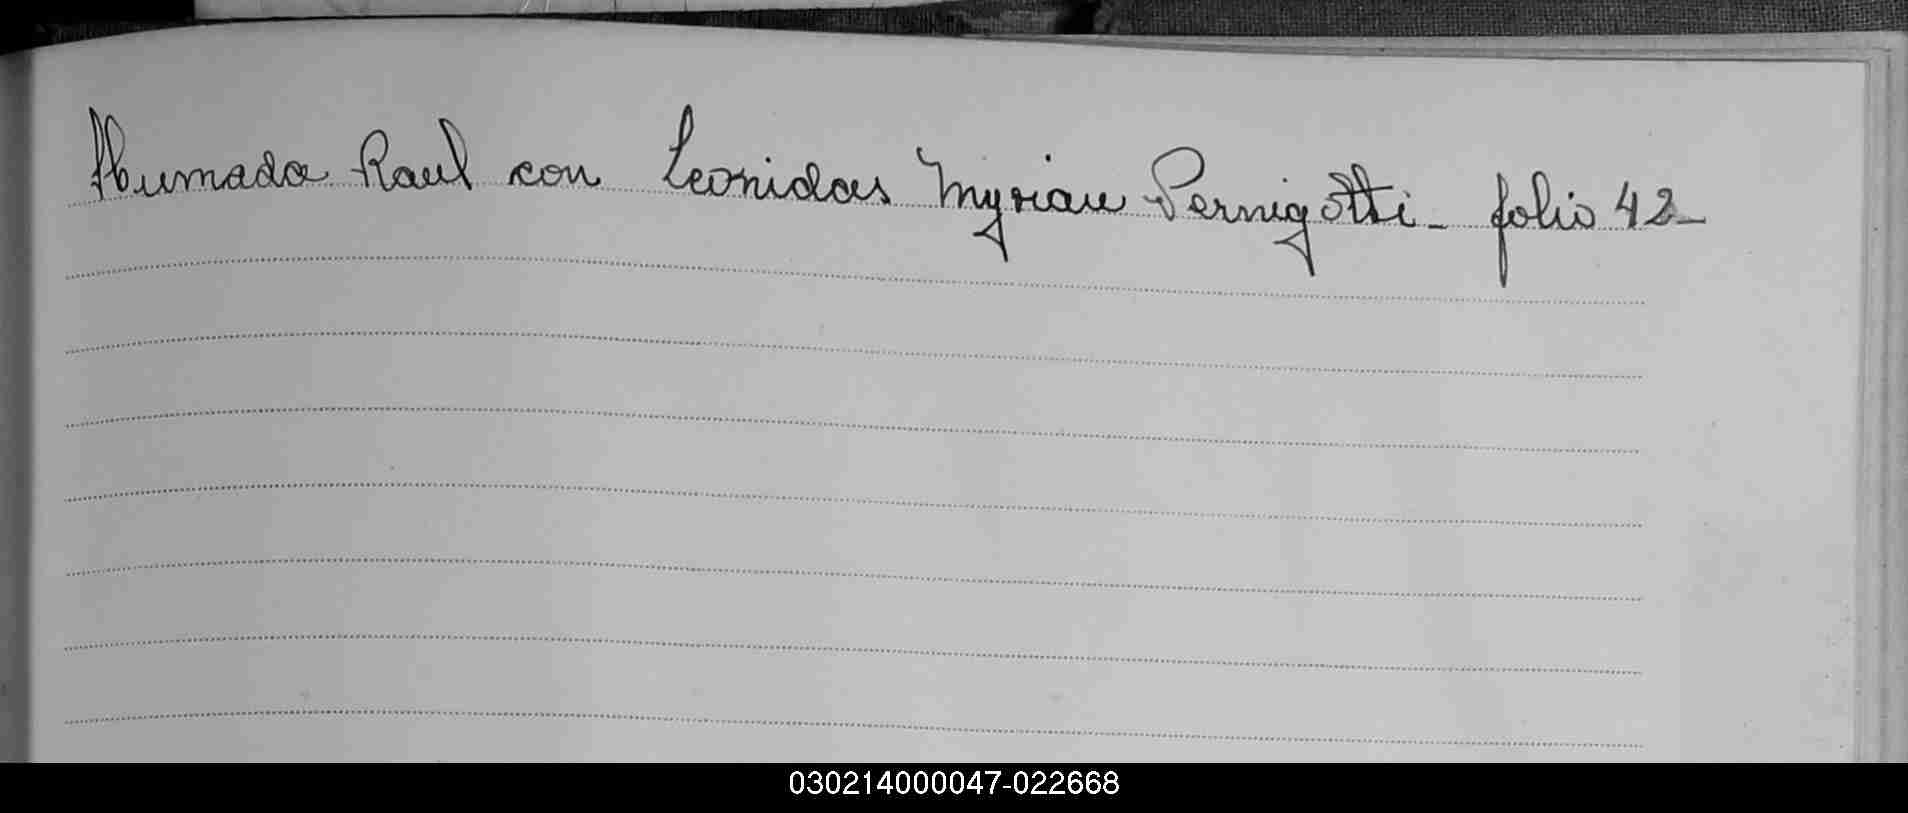 Humada Raul con Leonidas Myrian Pernigotti - folio 42-
030214000047-022668